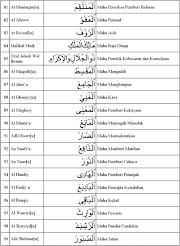 81 Al Muntaqim[u] المنتقم Maha Penyiksa Pemberi Balasan
82 Al 'Afuww العفو Maha Pemaaf
83 Ar Ra'uuf[u] الرؤوف Maha Asih
84 Malikul Mulk مالك الملك Maha Raja Diraja
85 Dzul Jalaali Wal Ikraam ذو الجلال والإكرام Maha Pemilik Keagungan dan Kemuliaan
86 Al Muqsith[u] المقسط Maha Mengadili
87 Al Jami' الجامع Maha Menghimpun
88 Al Ghaniyy[u] الغني Maha Kaya
89 Al Mughni المغني Maha Pemberi Kekayaan
90 Al Maani'[u] المانع Maha Menolak
91 Adl Dlaarr[u] الضار Maha Memudaratkan
92 An Naafi'u النافع Maha Pemberi Manfaat
93 An Nuur النور Maha Pemberi Cahaya
94 Al Haadiy الهادي Maha Pemberi Petunjuk
95 Al Badiy'u البديع Maha Pencipta Keindahan
96 Al Baaqiy الباقي Maha Kekal
97 Al Waarits[u] الوارث Maha Pewaris
98 Ar Rasyiyd[u] الرشيد Maha Pandai
99 Ash Shabuur[u] الصبور Maha Sabar